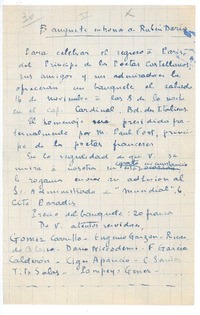 Banquete en honor a Rubén Darío
Para celebrar el regreso a París
del Príncipe de los Poetas Castellanos,
sus amigos y sus admiradores le
ofrecerán un banquete el sábado
16 de noviembre a las 8 de la noche
en el café Cardinal, Bd. des Italiens.
El homenaje será presidido
por M. Paul Fort, prínci-
pe de los poetas franceses.
En la seguridad de que V. se
unirá a nosotros en
le rogamos enviar su adhesión al
Sr. Administrador de "Mundial" 6
Cité Paradis.
Precio del banquete: 20 francos
De V. atentos servidores,
Gómez Carrillo - Eugenio Garzón -
Darío Nicodemi - F. García
Calderón - Ciges Aparicio - C.
Pompeyo Gener -